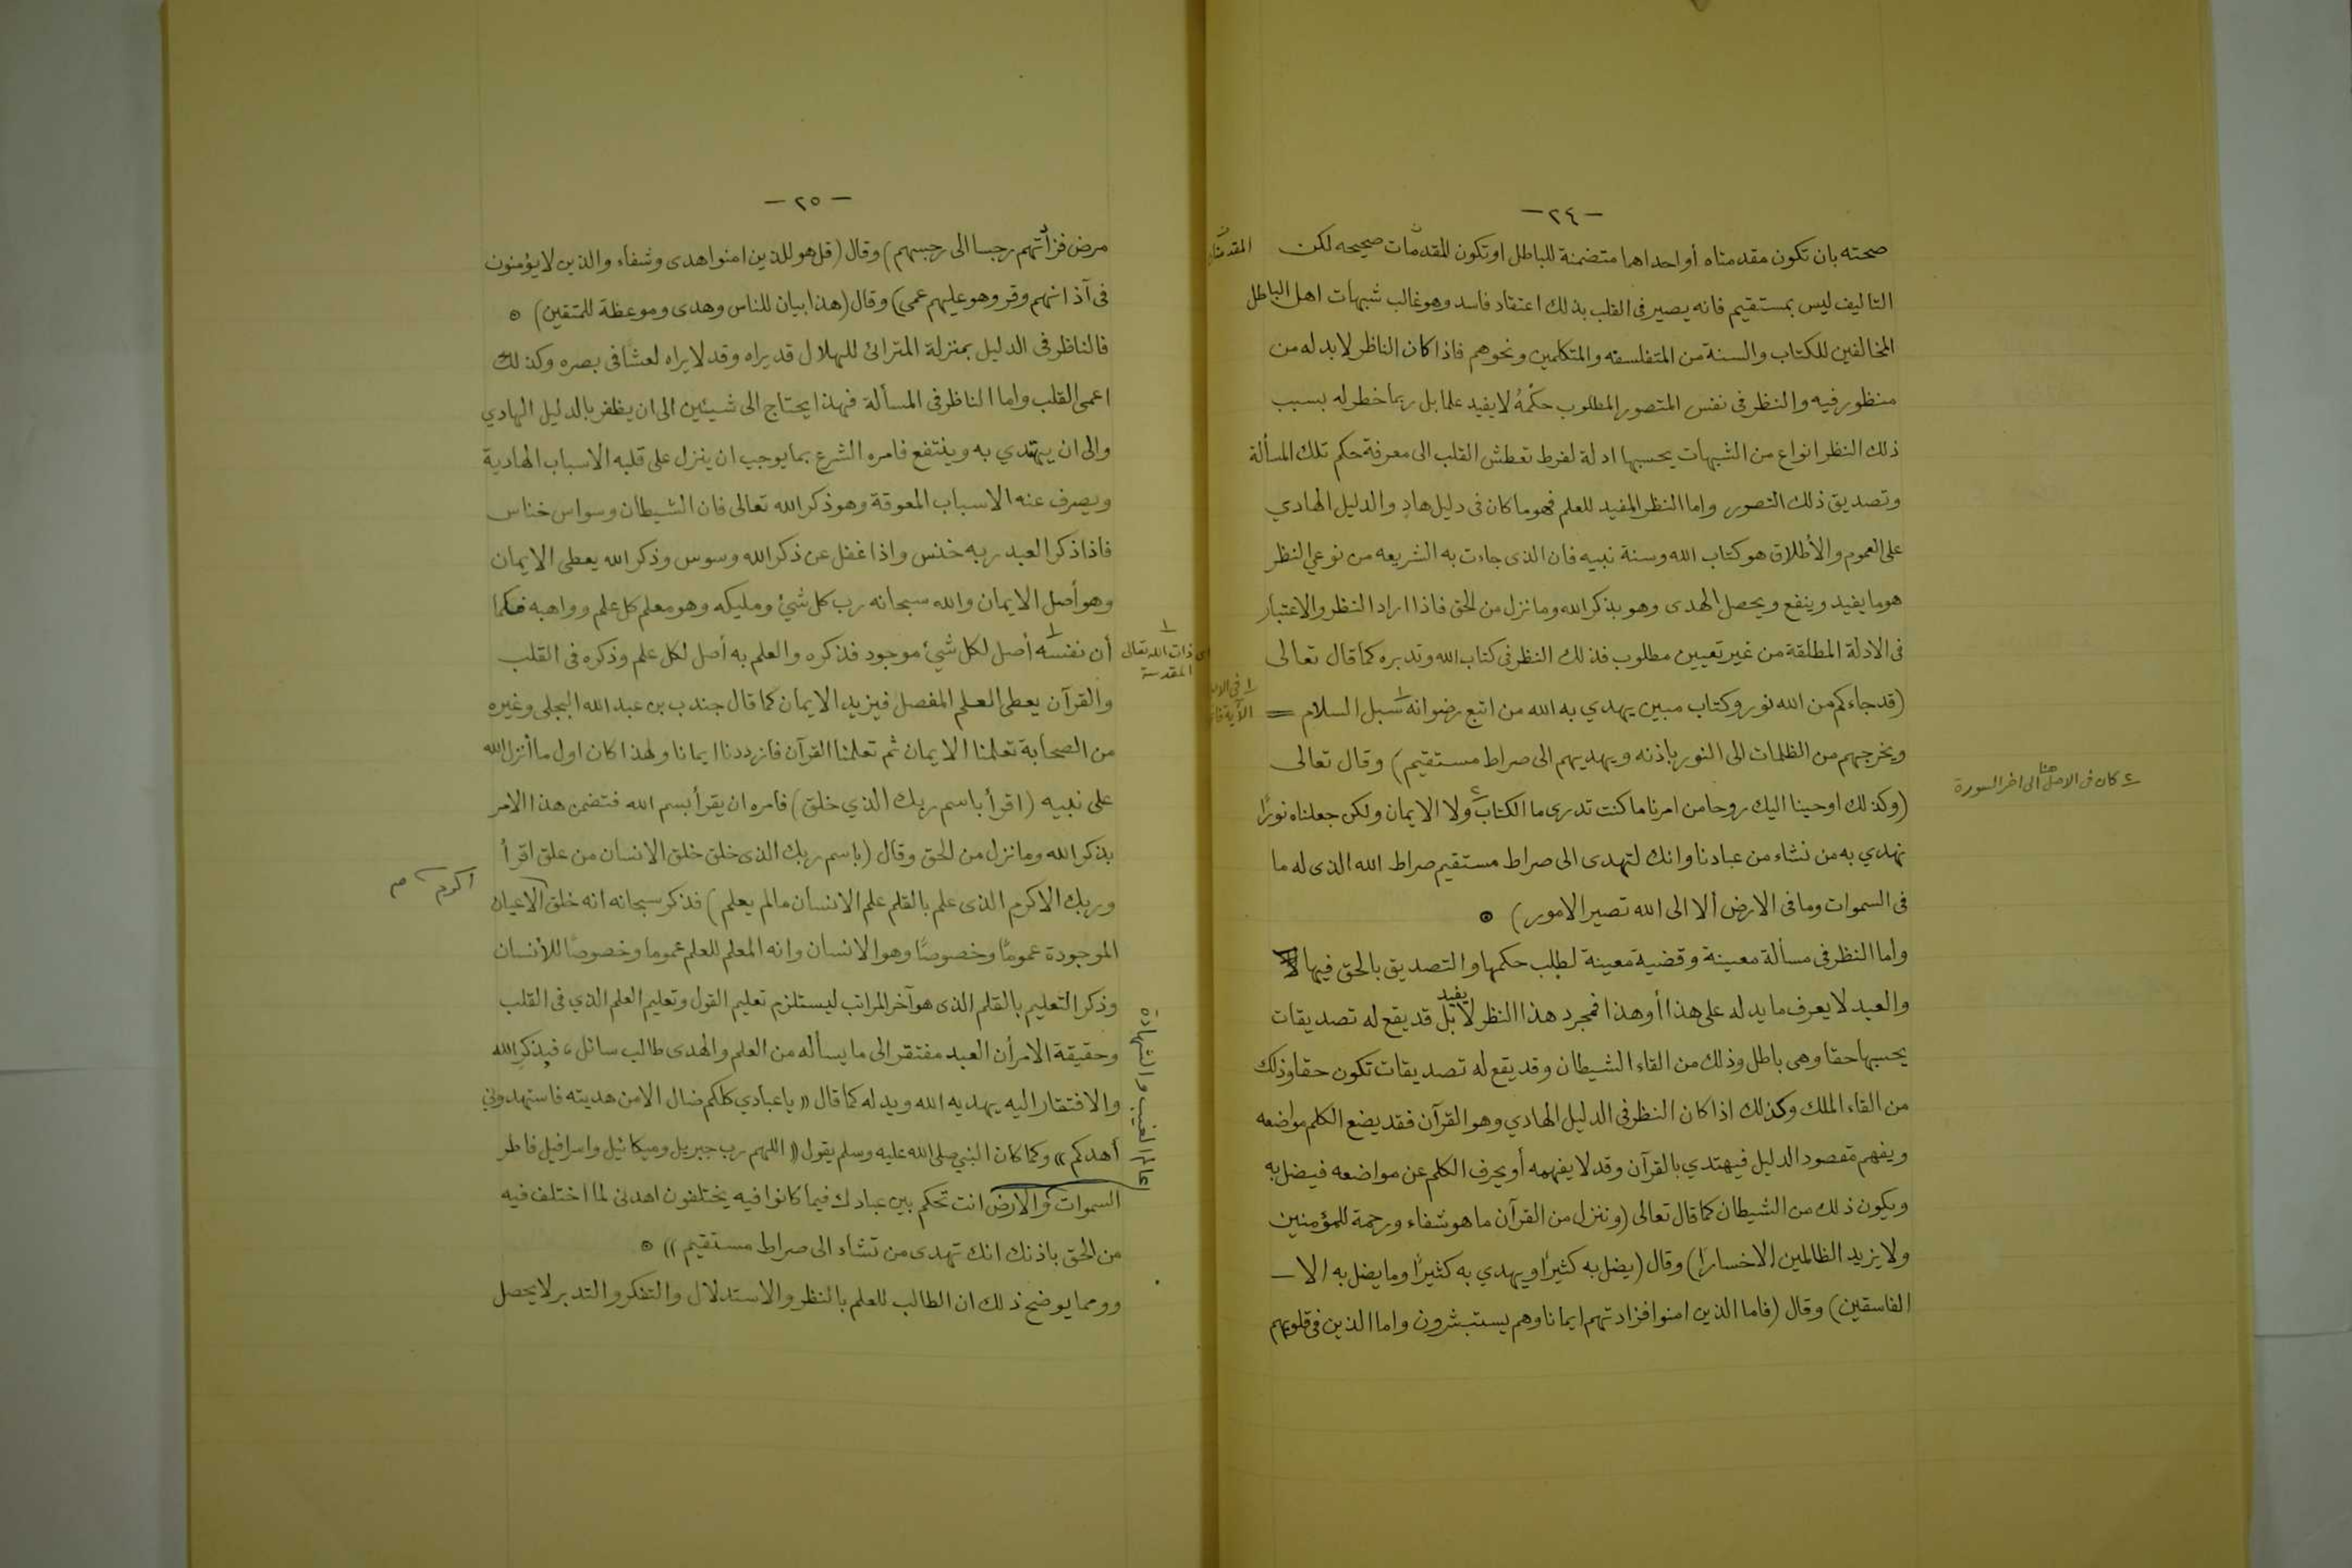 - ٢٤ -
صحته بان تكون مقدمتاه أو احداهما متضمنة للباطل او تكون المقدمات صحيحه لكن
التاليف ليس بمستقيم فانه يصير فى القلب بذلك اعتقاد فاسد وهو غالب شبهات اهل الباطل
المخالفين للكتاب والسنة من المتفلسفه والمتكلمين ونحوهم فاذا كان الناظر لا بد له من
منظور فيه والنظر فى نفس المتصور المطلوب حكمهُ لا يفيد علما بل ربما خطر له بسبب
ذلك النظر انواع من الشبهات يحسبها ادلة لفرط تعطش القلب الى معرفة حكم تلك المسألة
وتصديق ذلك التصور واما النظر المفيد للعلم فهو ما كان فى دليل هادٍ والدليل الهادي
على العموم والأطلاق هو كتاب الله وسنة نبيه فان الذى جاءت به الشريعه من نوعي النظر
هو ما يفيد وينفع ويحصل الهدى وهو بذكر الله وما نزل من الحق فاذا اراد النظر والاعتبار
فى الادلة المطلقة من غير تعيين مطلوب فذلك النظر فى كتاب الله وتدبره كما قال تعالى
(قد جاءكم من الله نور وكتاب مبين يهدي به الله من اتبع رضوانه ١ سبل السلام =
ويخرجهم من الظلمات الى النور باذنه ويهديهم الى صراط مستقيم) وقال تعالى
(وكذلك اوحينا اليك روحا من امرنا ما كنت تدرى ما الكتاب ٢ ولا الايمان ولكن جعلناه نورًا
نهدي به من نشاء من عبادنا وانك لتهدى الى صراط مستقيم صراط الله الذى له ما
فى السموات وما فى الارض ألا الى الله تصير الامور) ⊙
واما النظر فى مسألة معينة وقضية معينة لطلب حكمها والتصديق بالحق فيها
والعبد لا يعرف ما يدله على هذا أو هذا فمجرد هذا النظر لا يفيد بل قد يقع له تصديقات
يحسبها حقا وهى باطل وذلك من القاء الشيطان وقد يقع له تصديقات تكون حقا وذلك
من القاء الملك وكذلك اذا كان النظر فى الدليل الهادي وهو القرآن فقد يضع الكلم مواضعه
ويفهم مقصود الدليل فيهتدي بالقرآن وقد لا يفهمه أو يحرف الكلم عن مواضعه فيضل به
ويكون ذلك من الشيطان كما قال تعالى (وننزل من القرآن ما هو شفاء ورحمة للمؤمنين
ولا يزيد الظالمين الا خسارا) وقال (يضل به كثيرًا ويهدي به كثيرًا وما يضل به الا -
الفاسقين) وقال (فاما الذين امنوا فزادتهم ايمانا وهم يستبشرون واما الذين فى قلوبهم
٢ كان فى الاصل هنا الى اخر السورة
- ٢٥ -
مرض فزادتهم رجسا الى رجسهم) وقال (قل هو للذين امنوا هدى وشفاء والذين لا يؤمنون
فى آذانهم وقر وهو عليهم عمى) وقال (هذا بيان للناس وهدى وموعظة للمتقين) ⊙
فالناظر فى الدليل بمنزلة المترائ للهلال قد يراه وقد لا يراه لعشًا فى بصره وكذلك
اعمى القلب واما الناظر فى المسألة فهذا يحتاج الى شيئين الى ان يظفر بالدليل الهادي
والى ان يهتدي به وينتفع فامره الشرع بما يوجب ان ينزل على قلبه الأسباب الهادية
ويصرف عنه الاسباب المعوقة وهو ذكر الله تعالى فان الشيطان وسواس خناس
فاذا ذكر العبد ربه خنس واذا غفل عن ذكر الله وسوس وذكر الله يعطى الايمان
وهو أصل الايمان والله سبحانه رب كل شئ ومليكه وهو معلم كل علم وواهبه فكما
أن نفسه ١ أصل لكل شئ موجود فذكره والعلم به أصل لكل علم وذكره فى القلب
١ اى ذات الله تعالى
المقدسة
والقرآن يعطى العلم المفصل فيزيد الايمان كما قال جندب بن عبد الله البجلى وغيره
من الصحابة تعلمنا الايمان ثم تعلمنا القرآن فازددنا ايمانا ولهذا كان اول ما أنزل الله
على نبيه (اقرأ باسم ربك الذي خلق) فامره ان يقرأ بسم الله فتضمن هذا الامر
بذكر الله وما نزل من الحق وقال (باسم ربك الذى خلق خلق الانسان من علق اقرأ
وربك الاكرم الذى علم بالقلم علم الانسان ما لم يعلم) فذكر سبحانه انه خلق الاعيان
الموجودة عمومًا وخصوصًا وهو الانسان وانه المعلم للعلم عموما وخصوصًا للأنسان
وذكر التعليم بالقلم الذى هو آخر المراتب ليستلزم تعليم القول وتعليم العلم الذي فى القلب
وحقيقة الامر أن العبد مفتقر الى ما يسأله من العلم والهدى طالب سائل، فبذكر الله
والافتقار اليه يهديه الله ويدله كما قال «يا عبادي كلكم ضال الا من هديته فاستهدوني
أهدكم» وكما كان النبي صلى الله عليه وسلم يقول «اللهم رب جبريل وميكائيل واسرافيل فاطر
السموات والارض انت تحكم بين عبادك فيما كانوا فيه يختلفون اهدنى لما اختلف فيه
عالم الغيب والشهادة
من الحق باذنك انك تهدى من تشاء الى صراط مستقيم» ⊙
ومما يوضح ذلك ان الطالب للعلم بالنظر والاستدلال والتفكر والتدبر لا يحصل